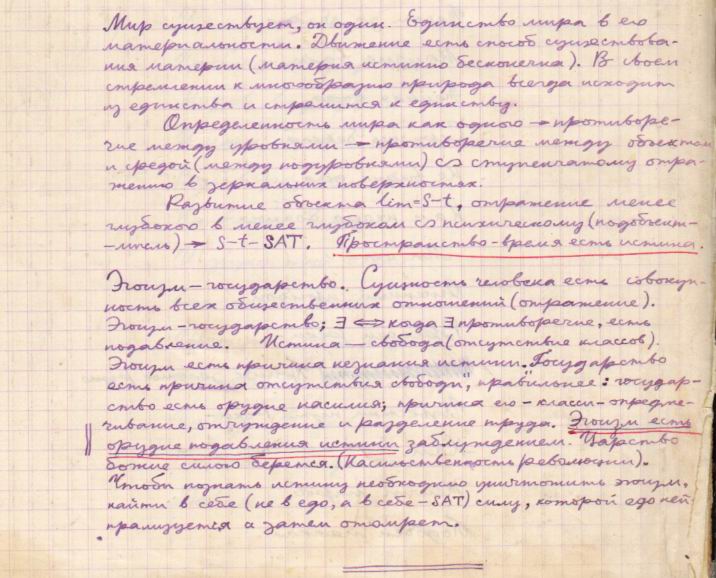 Мир существует, он один. Единство мира в его
материальности. Движение есть способ существова-
ния материи (материя истинно бесконечна). В своем
стремлении к многообразию природа всегда исходит
из единства и стремится к единству.
Определенность мира как одного → противоре-
чие между уровнями → противоречие между объектом
и средой (между подуровнями) ∽ ступенчатому отра-
жению в зеркальных поверхностях.
Развитие объекта lim=S-t, отражение менее
глубокого в менее глубоком ∽ психическому (подобъект-
-мысль) → S-t-SAT. Пространство-время есть истина.
Эгоизм-государство. Сущность человека есть совокуп-
ность всех общественных отношений (отражение).
Эгоизм-государство; ∃ ⟺ когда ∃ противоречие, есть
подавление. Истина — свобода (отсутствие классов).
Эгоизм есть причина незнания истины. "Государство
есть причина отсутствия свободы", правильнее: государ-
ство есть орудие насилия; причина его - классы - опредме-
чивание, отчуждение и разделение труда. Эгоизм есть
орудие подавления истины заблуждением. "Царство
божие силою берется. (Насильственность революции).
Чтобы познать истину необходимо уничтожить эгоизм,
найти в себе (не в едо, а в себе-SAT) силу, которой едо ней-
трализуется а затем отомрет.